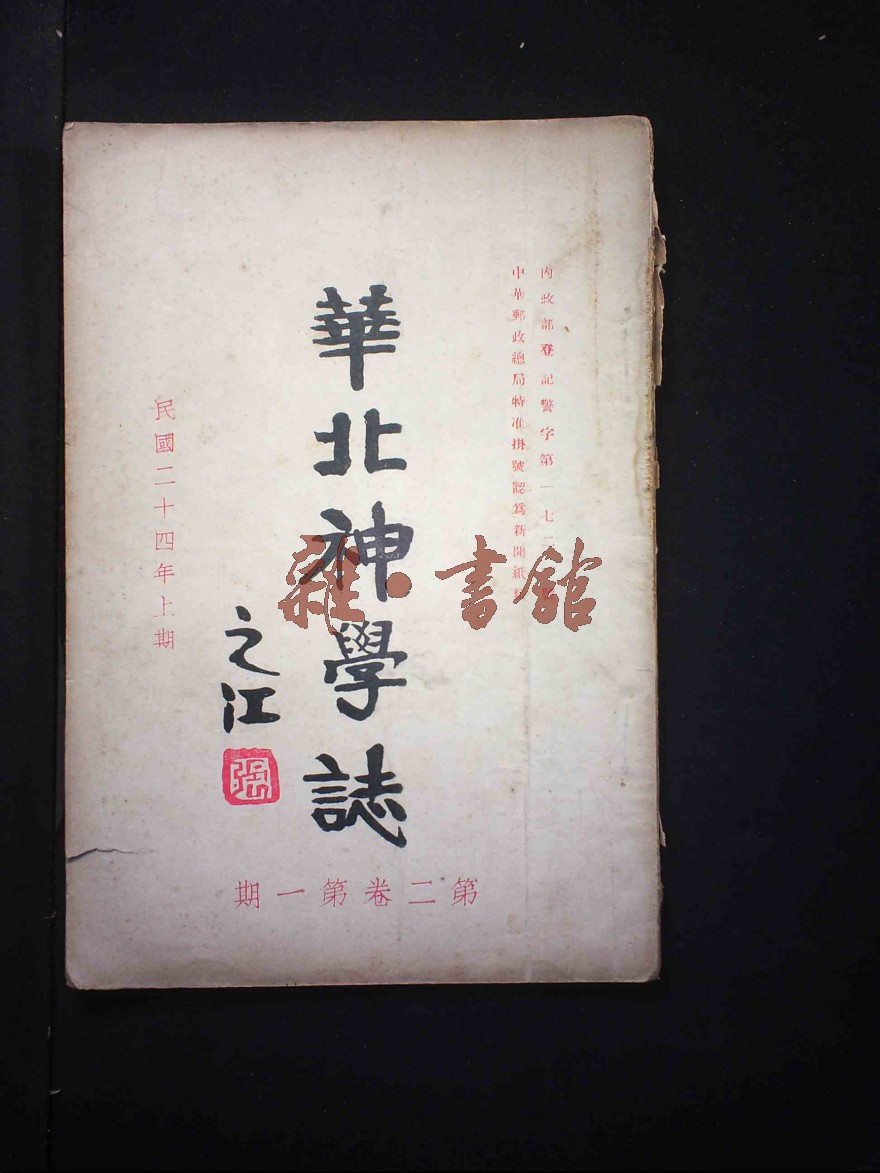 內政部登記警字第一七二
中華郵政總局特准掛號認爲新聞紙類
華北神學誌
之江
張
民國二十四年上期
第二卷第一期
雜·書館